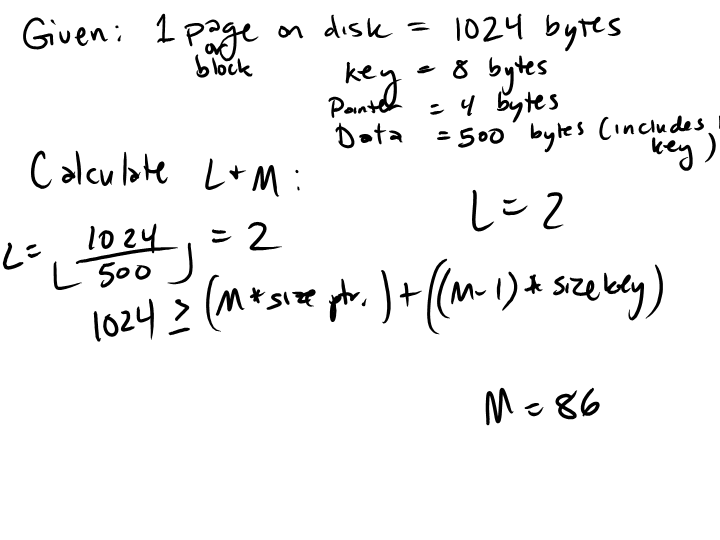 Given: 1 page on disk = 1024 bytes
or
block
key = 8 bytes
Pointer = 4 bytes
Data = 500 bytes (includes key)
Calculate L + M:
L = ⌊1024 / 500⌋ = 2
L = 2
1024 ≥ (M * size ptr.) + ((M - 1) * size key)
M = 86